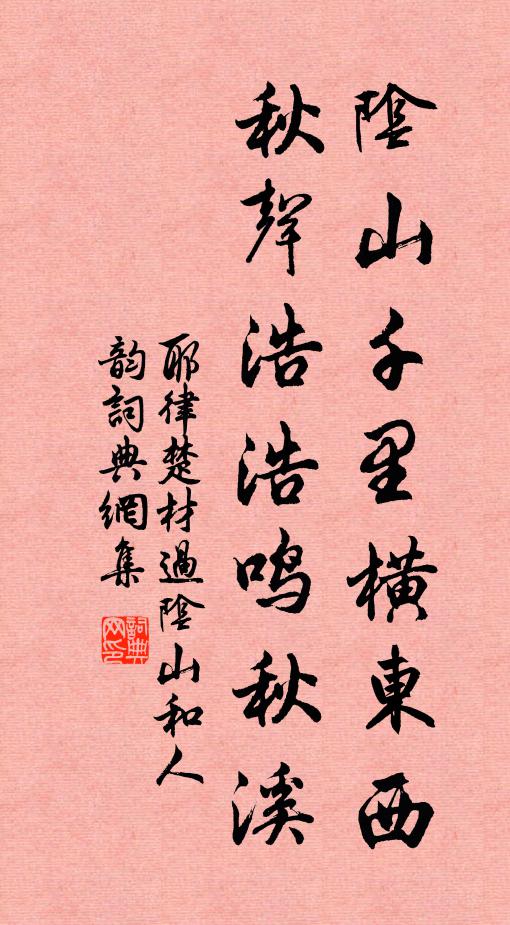 陰山千里橫東西
秋聲浩浩鳴秋溪
耶律楚材過陰山和人
韵詞典網集
詞典网印